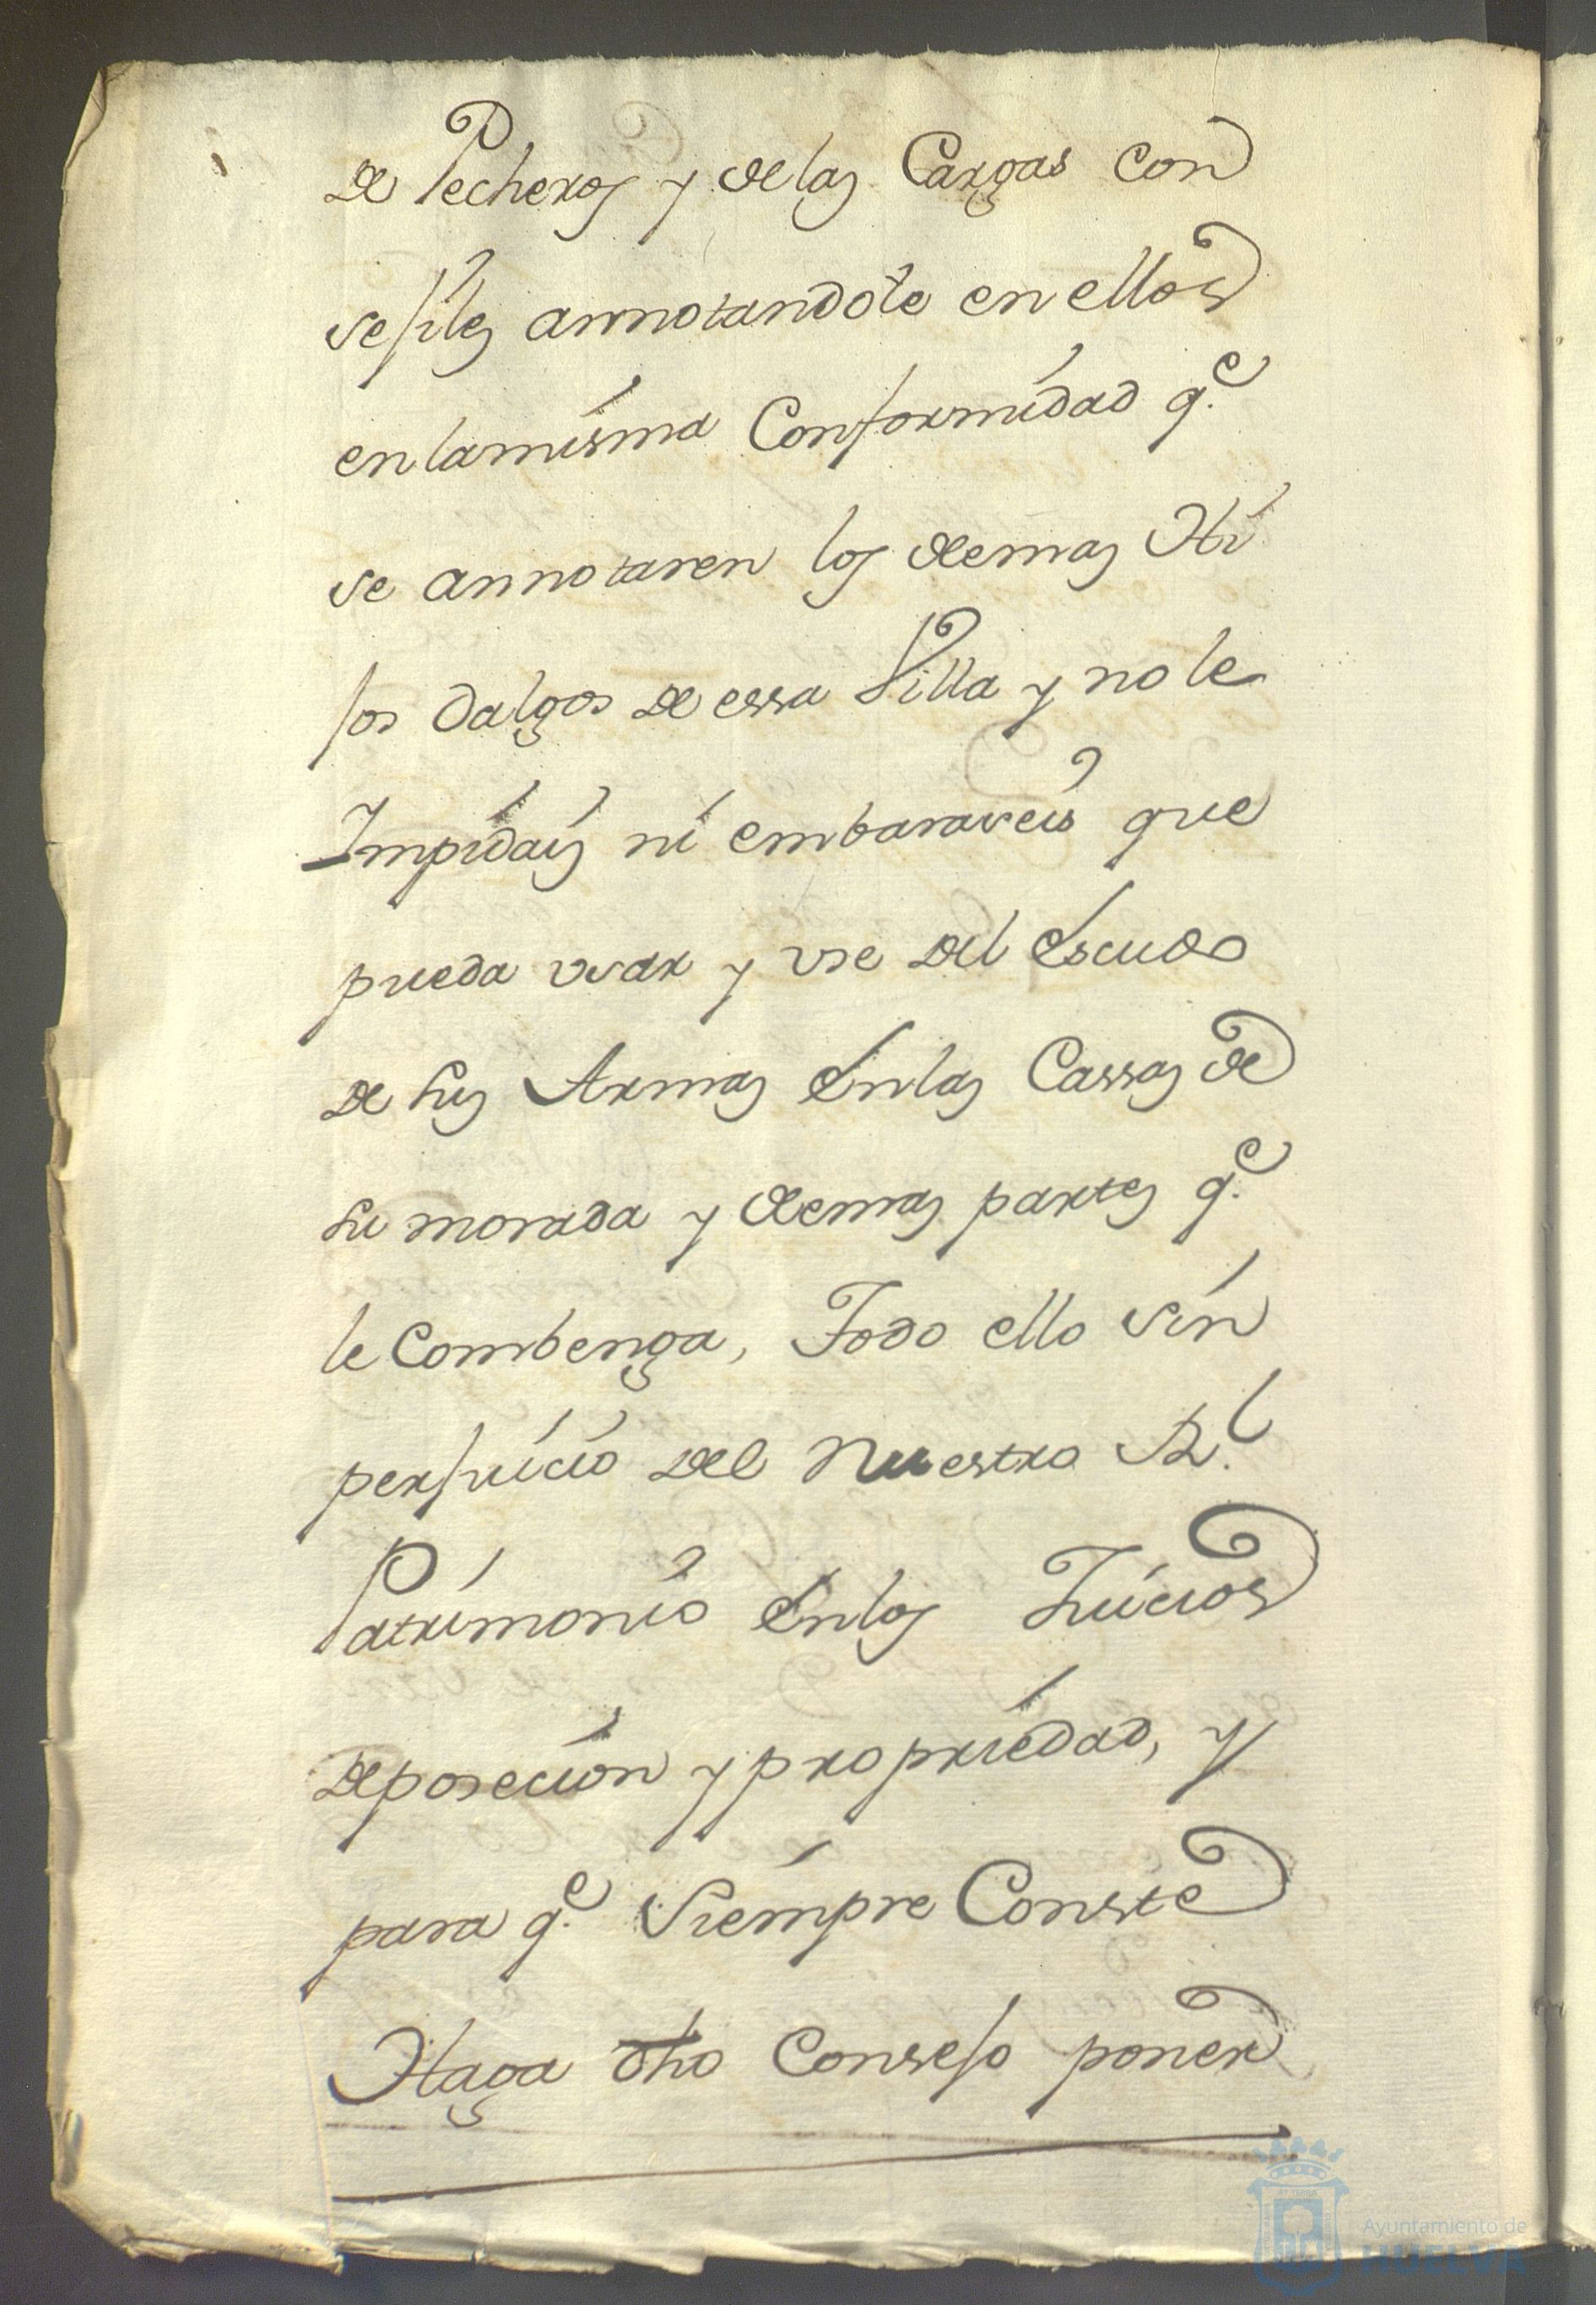 de Pecheros y de las Cargas con
sejiles annotandole en ellos
en la misma Conformidad q.e
se annotaren los demas Hi
jos dalgos de essa Villa y no le
Impidais ni embaraseis que
pueda usar y use del escudo
de sus Armas en las Cassas de
su morada y demas partes q.e
le Combenga, Todo ello sin
perjuicio del Nuestro R.l
Patrimonio en los Juicios
de posecion y propriedad, y
para q.e siempre Conste
Haga dho Consejo poner
Ayuntamiento de
HUELVA